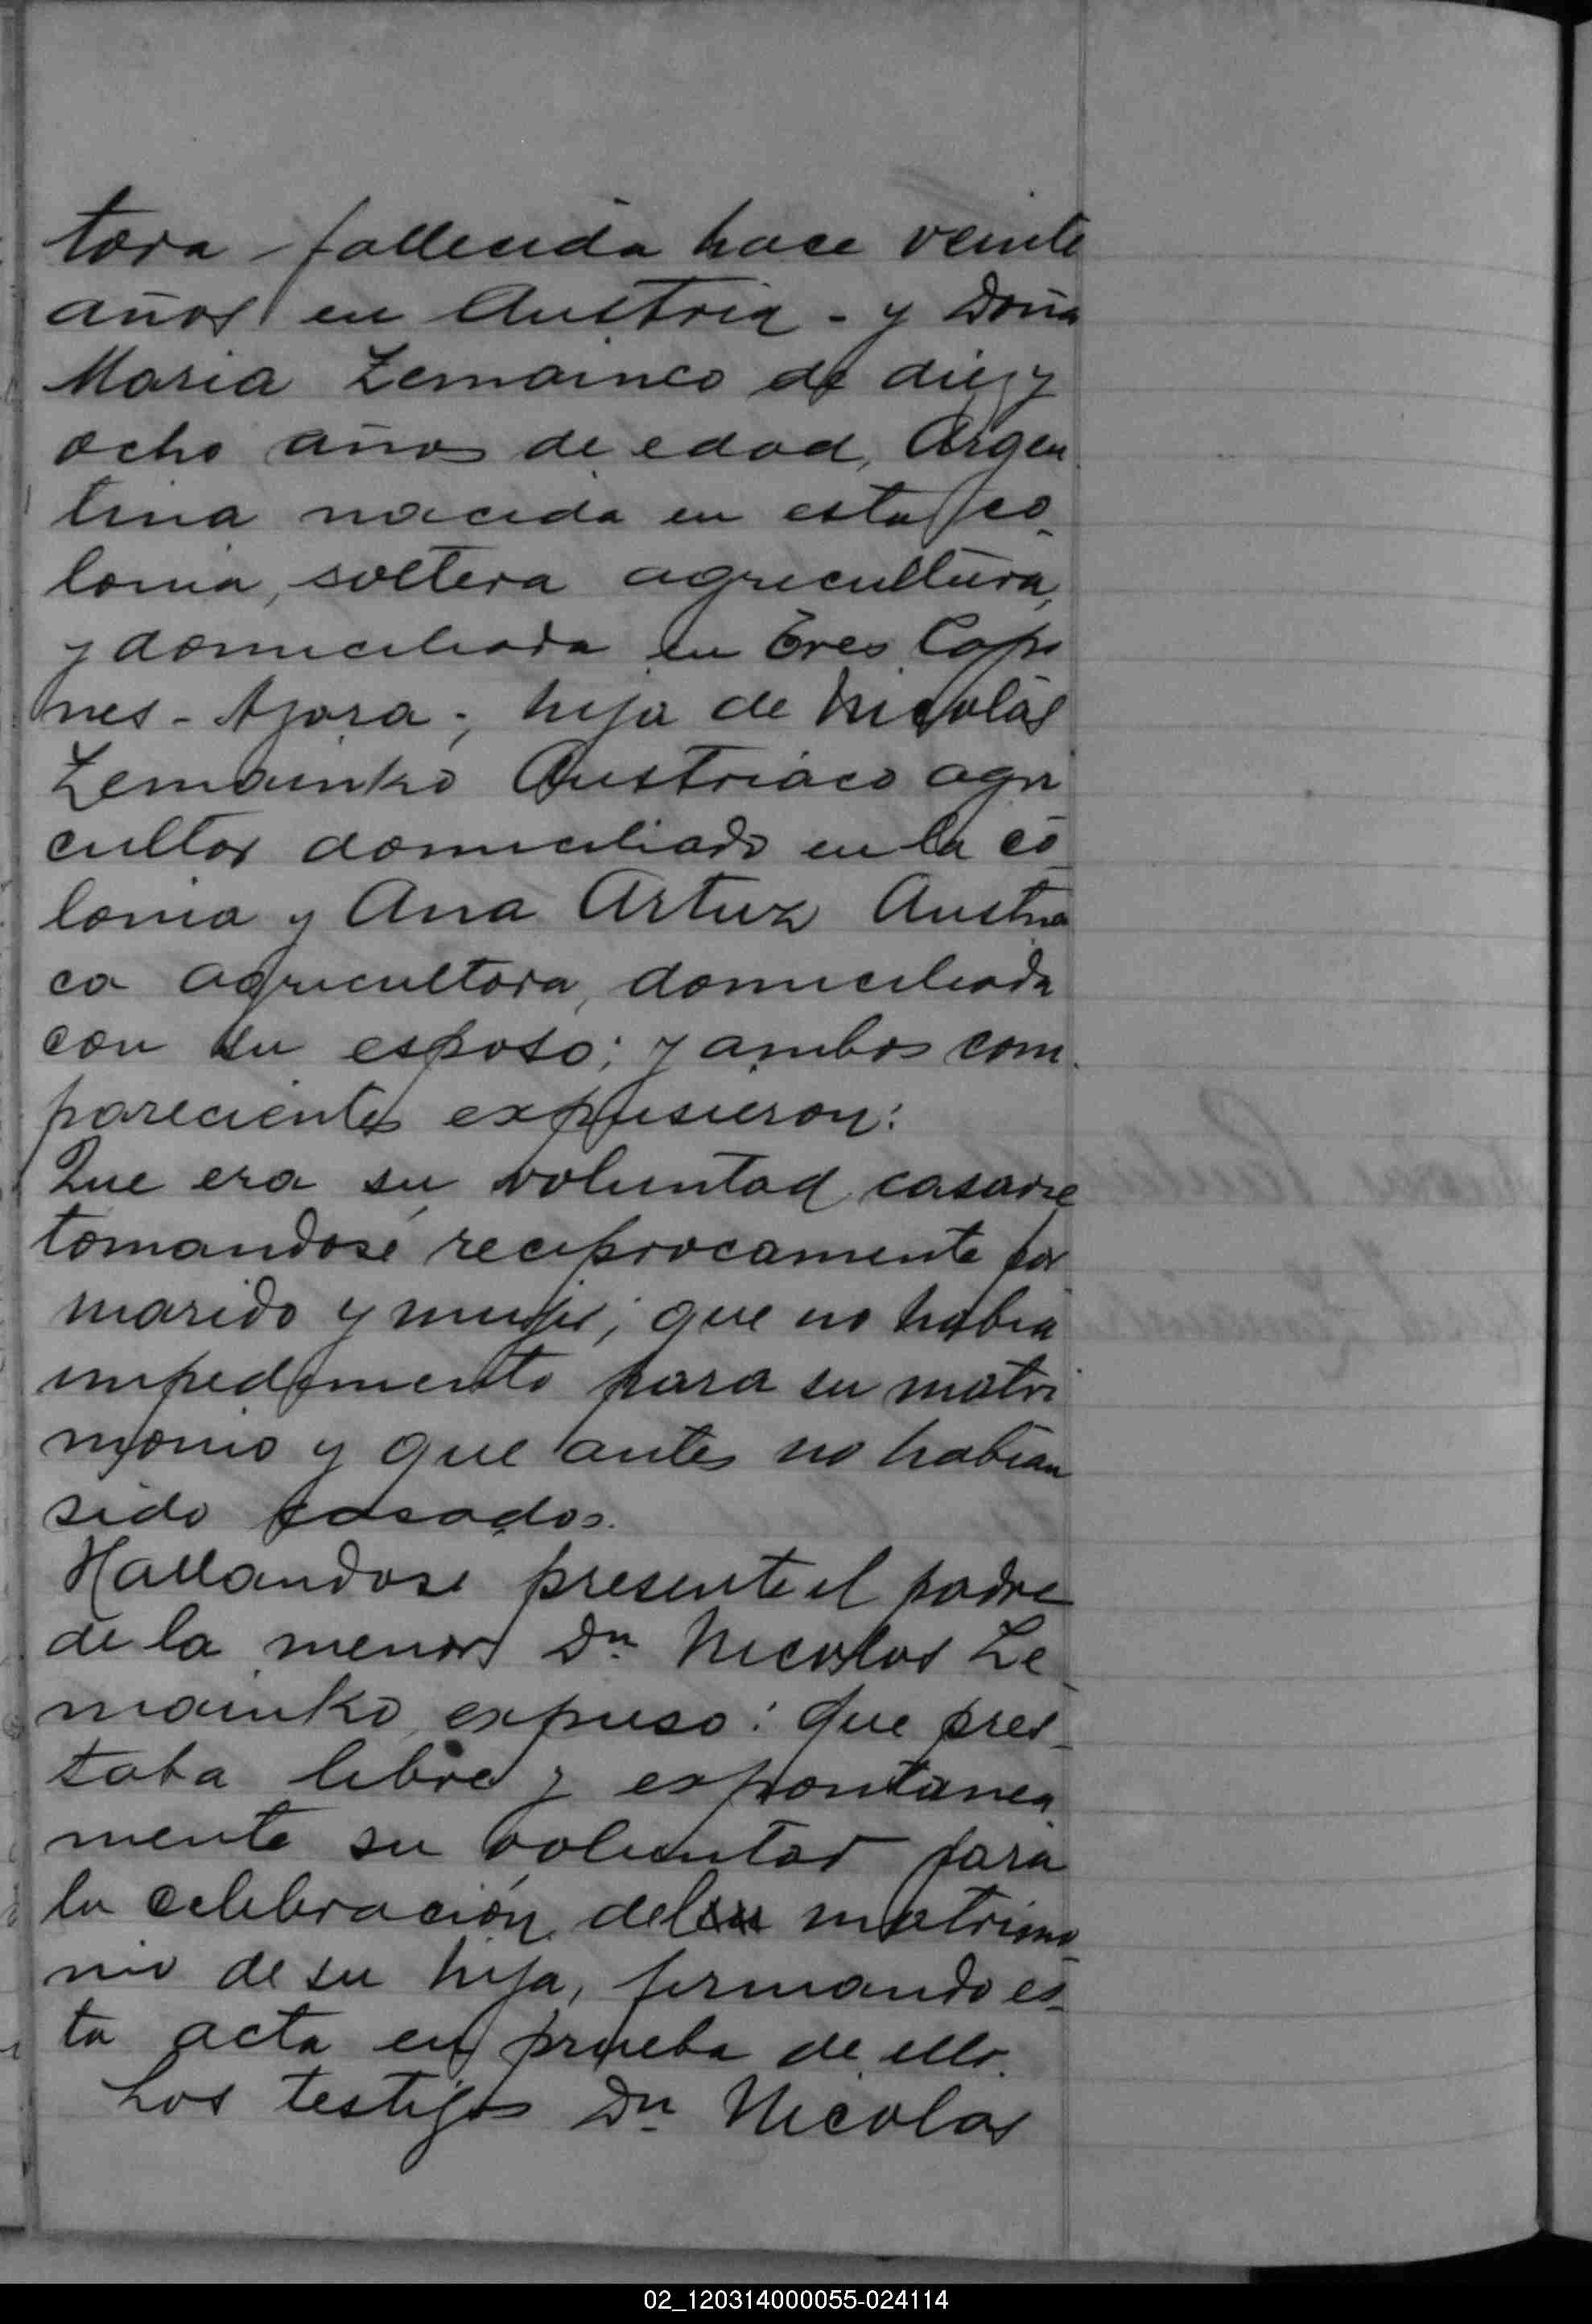 tora fallecida hace veinte
años en Austria - y Doña
Maria Zemainco de diez y
ocho años de edad, Argen
tina nacida en esta co_
lonia, soltera agricultura,
y domiciliada en Tres Capo
nes - Apora; hija de Nicolás
Zemainko Austriaco agri
cultor domiciliado en la co_
lonia y Ana Artuz Austria
ca agricultora, domiciliada
con su esposo; y ambos com.
parecientes expusieron:
Que era su voluntad casarse
tomandose reciprocamente por
marido y mujer; que no habia
impedimento para su matri
monio y que antes no habian
sido casados.
Hallandose presente el padre
de la menor Dn Nicolas Ze_
mainko, expuso: que pres_
taba libre y espontanea
mente su voluntad para
la celebración del matrimo_
nio de su hija, firmando es_
ta acta en prueba de ello.
Los testigos Dn Nicolas
02_120314000055-024114